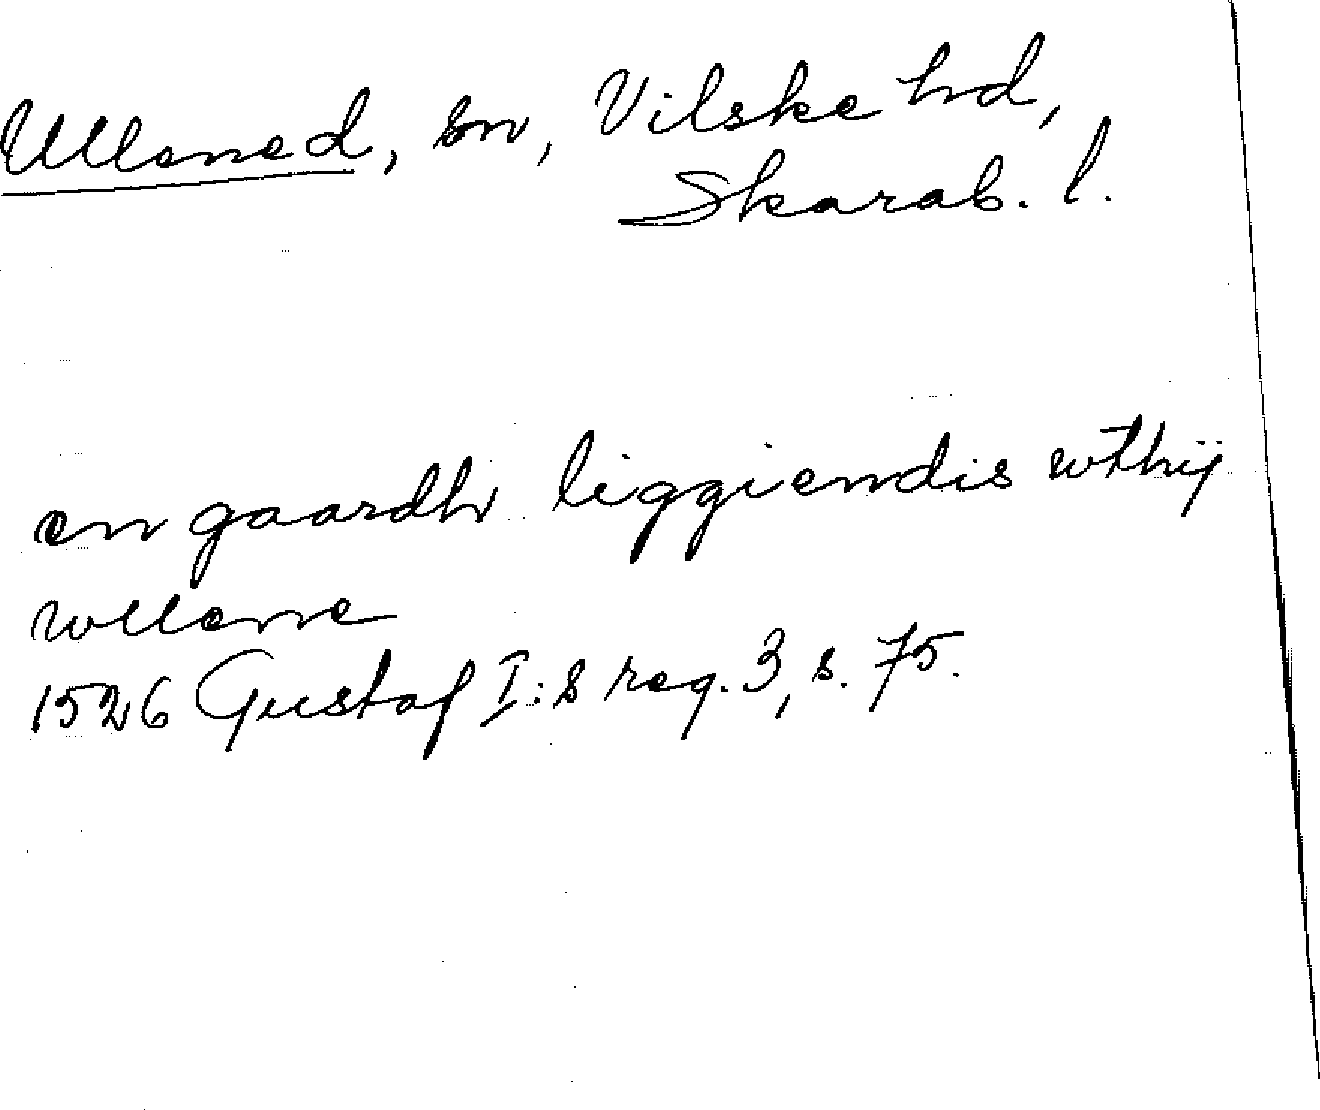 Ullened, sn, Vilske hd,
Skarab. l.
en gaardh liggiendis wthij
wllene
1526 Gustaf I:s reg. 3, s. 75.